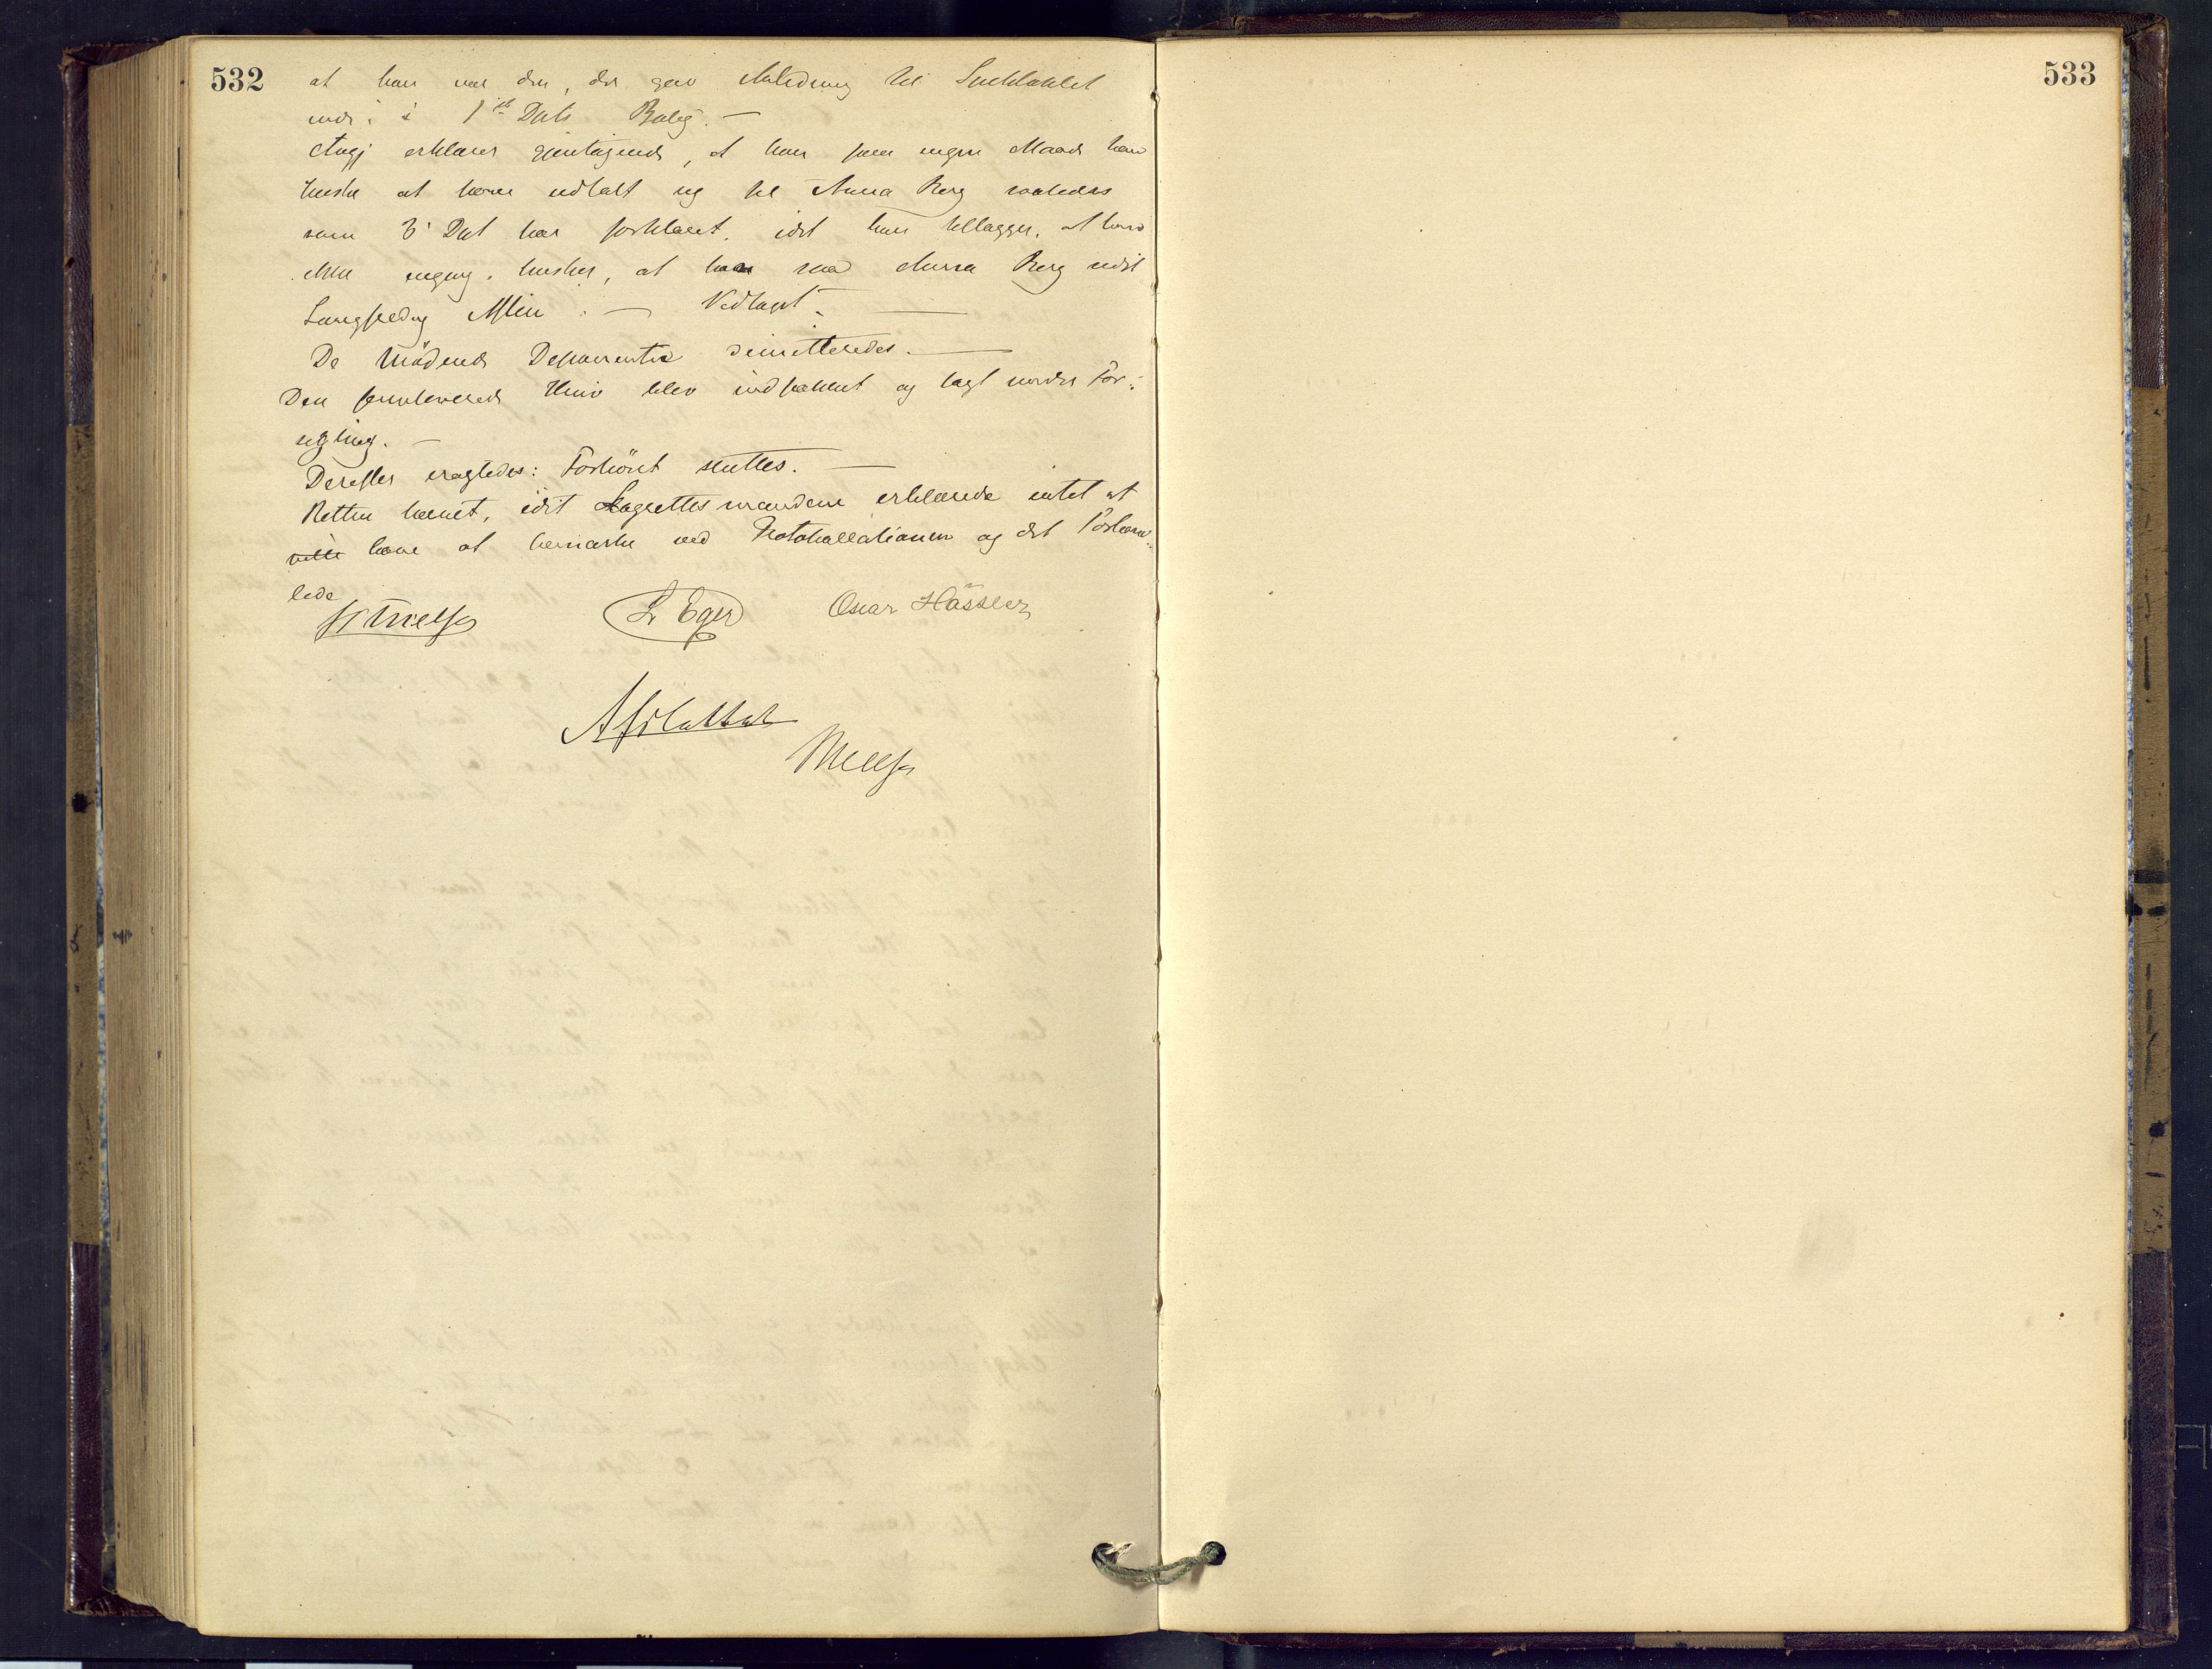 532
at han var den, der gav Anledning til Snakket
inde i 1ste Dpts Bolig. —
Angj erklærer gjentagende, at han paa ingen Maade kan
huske at have udtalt sig til Anna Berg saaledes
som 3' Dpt har forklaret, idet han tillægger, at han
ikke engang husker, at han saa Anna Berg
. — Vedtaget. —
De mødende Deponenter dimitteredes. —
Den Kniv blev indpakket og lagt under For-
segling. —
Derefter eragtedes: Forhøret sluttes. —
Retten hævet, idet Lagrettesmændene erklærede intet at
ville have at bemærke ved Protokollationen og det Forhand-
lede
L Eger
Oscar Hässler
533